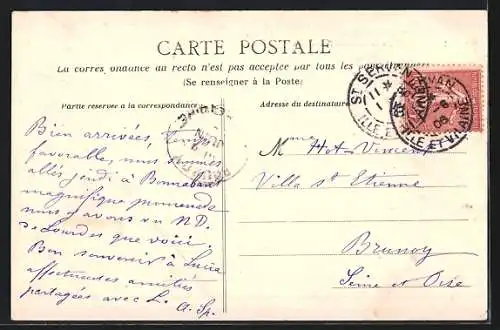 CARTE POSTALE
La correspondance au recto n'est pas acceptée par tous les pays étrangers
(Se renseigner à la Poste)
Partie réservée à la correspondance
Adresse du destinataire
ST SERVAN
ILLE ET VILAINE
Bien arrivées, temps
favorable, nous sommes
allés jeudi à Bonnaban
magnifique promenade
nous y avons vu N.D.
de Lourdes que voici.
Bon souvenir à Lucie
affectueuses amitiés
partagées avec L. A. Sp.
Mme Hot-Vincent
Villa St Etienne
Brunoy
Seine et Oise